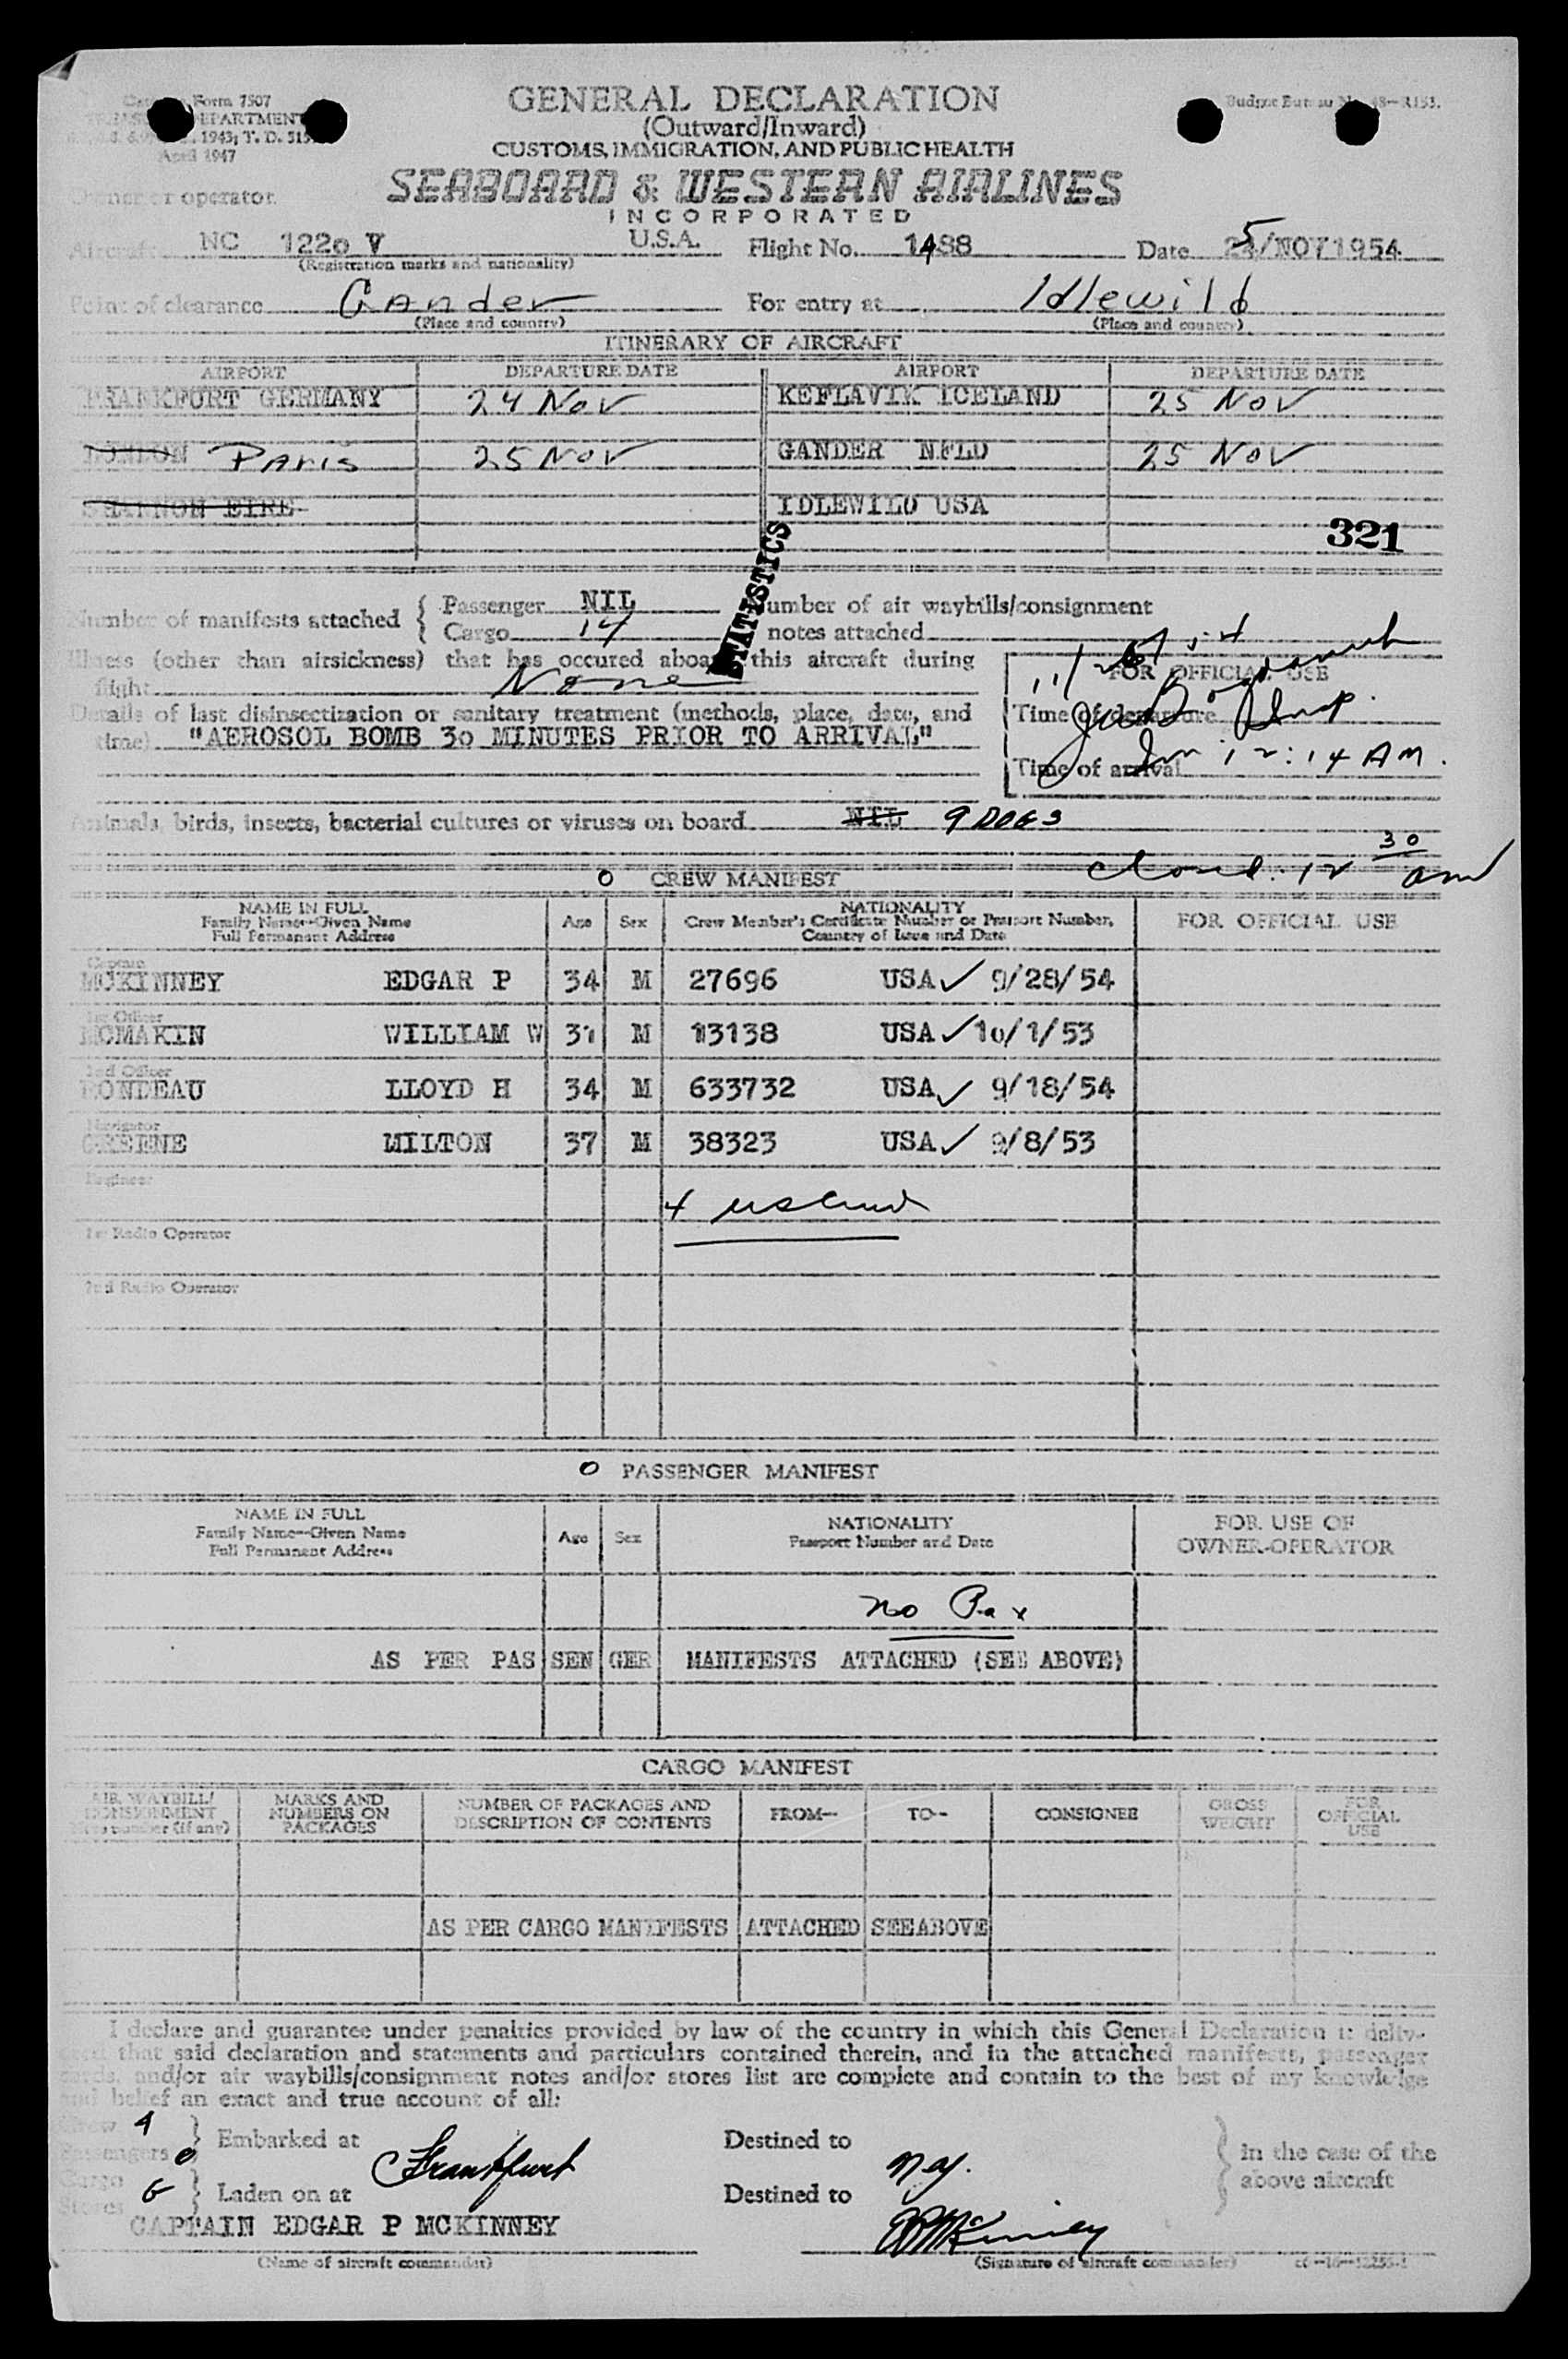 Form 7507
GENERAL DECLARATION
(Outward/Inward)
CUSTOMS, IMMIGRATION, AND PUBLIC HEALTH
DEPARTMENT
1943; T. D.
April 1947
SEABOARD & WESTERN AIRLINES
INCORPORATED
Owner or operator
Aircraft NC 1220 V U.S.A. Flight No. 1488 Date 25/NOV 1954
(Registration marks and nationality)
Point of clearance Gander For entry at Idlewild
(Place and country) (Place and country)
ITINERARY OF AIRCRAFT
AIRPORT DEPARTURE DATE AIRPORT DEPARTURE DATE
FRANKFURT GERMANY 24 Nov KEFLAVIK ICELAND 25 Nov
LONDON Paris 25 Nov GANDER NFLD 25 Nov
SHANNON EIRE IDLEWILD USA
321
STATISTICS
Number of manifests attached { Passenger NIL Number of air waybills/consignment
Cargo 14 notes attached
Illness (other than airsickness) that has occured aboard this aircraft during
flight None
FOR OFFICIAL USE
Details of last disinsectization or sanitary treatment (methods, place, date, and
time) "AEROSOL BOMB 30 MINUTES PRIOR TO ARRIVAL"
Time of departure
Time of arrival 12:14 AM.
Animals, birds, insects, bacterial cultures or viruses on board NIL 9 DOGS
Closed. 12 30 am
0 CREW MANIFEST
NAME IN FULL
Family Name--Given Name
Full Permanent Address
Age Sex
NATIONALITY
Crew Member's Certificate Number or Passport Number,
Country of Issue and Date
FOR OFFICIAL USE
Captain
MCKINNEY EDGAR P 34 M 27696 USA ✓ 9/28/54
1st Officer
MCMAKIN WILLIAM W M 13138 USA ✓ 10/1/53
2nd Officer
RONDEAU LLOYD H 34 M 633732 USA ✓ 9/18/54
Navigator
GREENE MILTON 37 M 38323 USA ✓ 9/8/53
Engineer
4
1st Radio Operator
2nd Radio Operator
0 PASSENGER MANIFEST
NAME IN FULL
Family Name--Given Name
Full Permanent Address
Age Sex
NATIONALITY
Passport Number and Date
FOR USE OF
OWNER-OPERATOR
No Pax
AS PER PAS SEN GER MANIFESTS ATTACHED (SEE ABOVE)
CARGO MANIFEST
AIR WAYBILL/
CONSIGNMENT
number (if any)
MARKS AND
NUMBERS ON
PACKAGES
NUMBER OF PACKAGES AND
DESCRIPTION OF CONTENTS
FROM-- TO-- CONSIGNEE
GROSS
WEIGHT
FOR
OFFICIAL
USE
AS PER CARGO MANIFESTS ATTACHED SEE ABOVE
I declare and guarantee under penalties provided by law of the country in which this General Declaration is deliv-
ered that said declaration and statements and particulars contained therein, and in the attached manifests, passenger
cards, and/or air waybills/consignment notes and/or stores list are complete and contain to the best of my knowledge
and belief an exact and true account of all:
Crew 4
Passengers 0 } Embarked at Frankfurt Destined to N.Y. } In the case of the
Cargo
Stores } Laden on at Destined to above aircraft
CAPTAIN EDGAR P MCKINNEY EPMcKinney
(Name of aircraft commander) (Signature of aircraft commander)